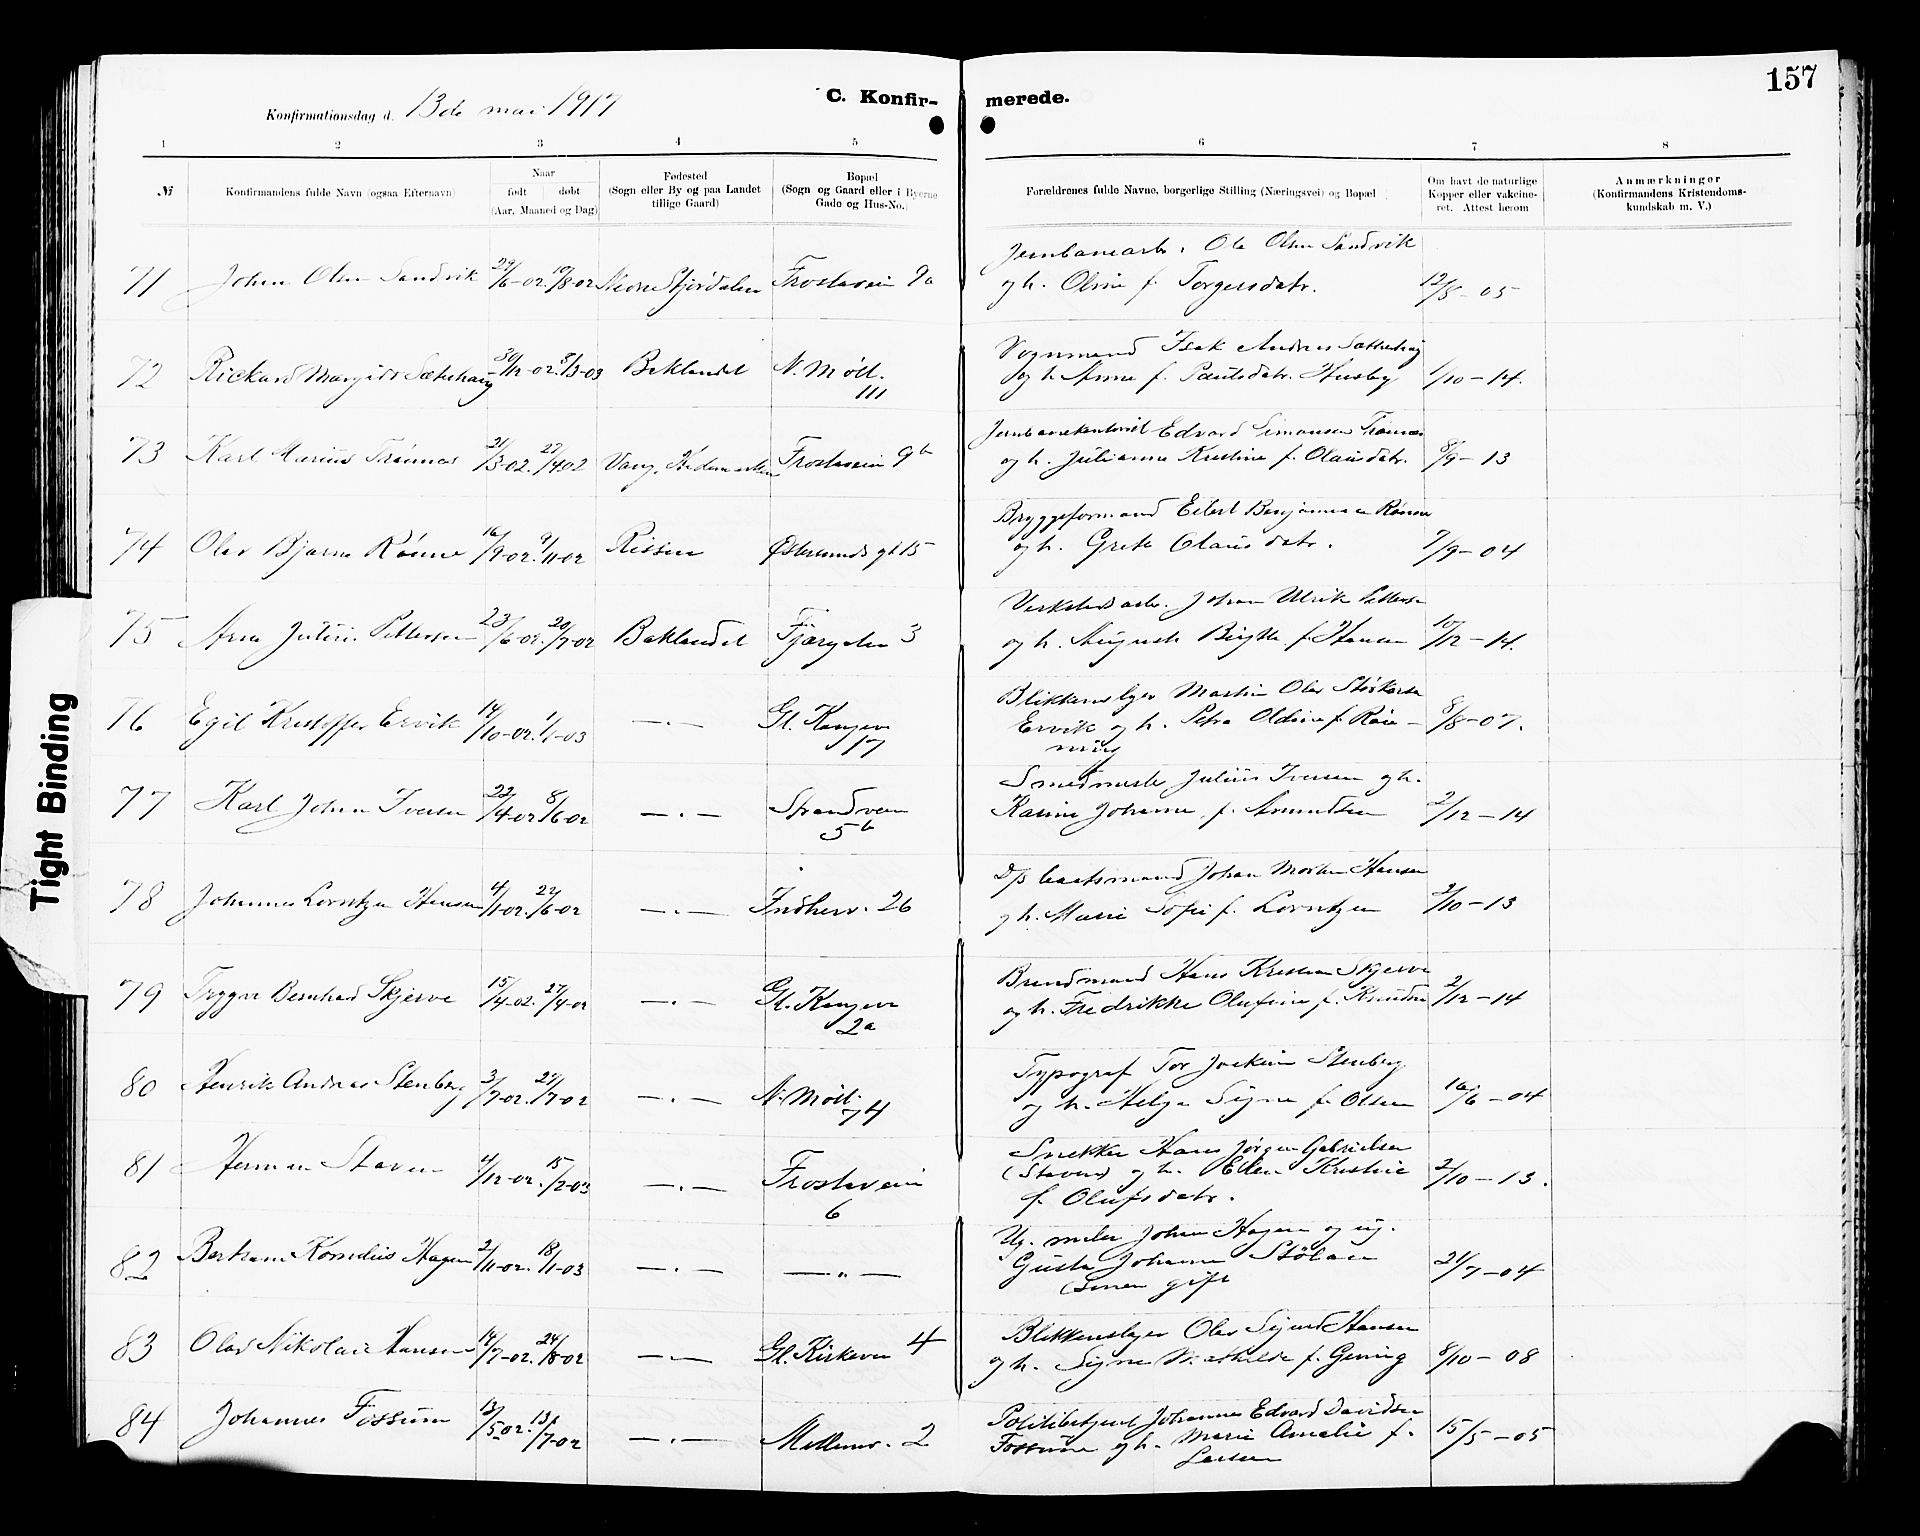 157
C. Konfirmerede.
Konfirmationsdag d. 13de mai 1917
1 2 3 4 5 6 7 8
№
Konfirmandens fulde Navn (ogsaa Efternavn)
Naar
født døbt
(Aar, Maaned og Dag)
Fødested
(Sogn eller By og paa Landet
tillige Gaard)
Bopæl
(Sogn og Gaard eller i Byerne
Gade og Hus-No.)
Forældrenes fulde Navne, borgerlige Stilling (Næringsvei) og Bopæl
Om havt de naturlige
Kopper eller vakcine-
ret. Attest herom
Anmærkninger
(Konfirmandens Kristendoms-
kundskab m. V.)
71 Johan Olsen Sandvik 29/6-02 10/8-02 Nedre Stjørdalen Frostaveien 9a
Jernbanearb. Ole Olsen Sandvik
og h. Oline f. Torgersdatr. 12/8-05
72 Rickard Margido Sæterhaug 30/12-02. 8/3-03 Baklandet N. Møll.
111
Vognmand Isak Andreas Sætherhaug
og h. Anna f. Paulsdatr. Husby 1/10-14.
73 Karl Marius Trønnes 21/3-02. 27/4 02 Vang, Hedemarken Frostaveien 9b
Edvard Simonsen Trønnes
og h. Julianna Kristine f. Olausdatr. 8/9-13
74 Olav Bjarne Rønne 16/9-02. 9/11-02 Rissen Østersunds gt 15
Bryggeformand Eilert Benjaminsen Rønne
og h. Grete Olausdatr. 7/9-04
75 Arne Julius Pettersen 23/6-02. 20/7-02 Baklandet Fjærgaten 3
Verkstedsarb. Johan Ulrik Pettersen
og h. Augusta Birgitte f. Hansen 10/12-14.
76 Egil Kristoffer Ervik 14/10-02. 1/1-03 —„— Gl. Kongev.
17
Blikkenslager Martin Olav Størkersen
Ervik og h. Petra Oldine f. Røn-
ning 8/8-07.
77 Karl Johan Iversen 22/4-02 8/6-02 —„— Strandveien
5b
Smedmester Julius Iversen og h.
Karine Johanna f. Amundsen 2/12-14
78 Johannes Lorntzen Hansen 4/1-02. 22/6-02 —„— Indherv. 26
D/s baatsmand Johan Morten Hansen
og h. Marie Sofie f. Lorntzen 2/10-13
79 Trygve Bernhard Skjerve 15/4-02. 27/4-02 —„— Gl. Kongev.
2a
Brandmand Hans Kristian Skjerve
og h. Fredrikke Olufine f. Knudsen 2/12-14
80 Henrik Andreas Stenberg 3/7-02. 27/7-02 —„— N. Møll.
74
Typograf Tor Joakim Stenberg
og h. Helga Signe f. Olsen 16/6-04
81 Herman Staven 4/12-02. 15/2-03 —„— Frostaveien
6
Snekker Hans Jørgen Gabrielsen
(Staven) og h. Ellen Kristine
f. Olufsdatr. 2/10-13.
82 Bertram Kornelius Hagen 2/11-02. 18/1-03 —„— —„—
Ug. maler Johan Hagen og ug.
Gusta Johanna Stølan
(senere gift 21/7-04
83 Olav Nikolai Hansen 14/7-02. 24/8-02 —„— Gl. Kirkevei 4
Blikkenslager Olav Sigurd Hansen
og h. Signe Mathilde f. Gening 8/10-08
84 Johannes Fossum 13/5 02. 13/7-02 —„— Mellemv. 2
Politibetjent Johannes Edvard Davidsen
Fossum og h. Marie Amalie f.
Larsen 15/5-05
Tight Binding